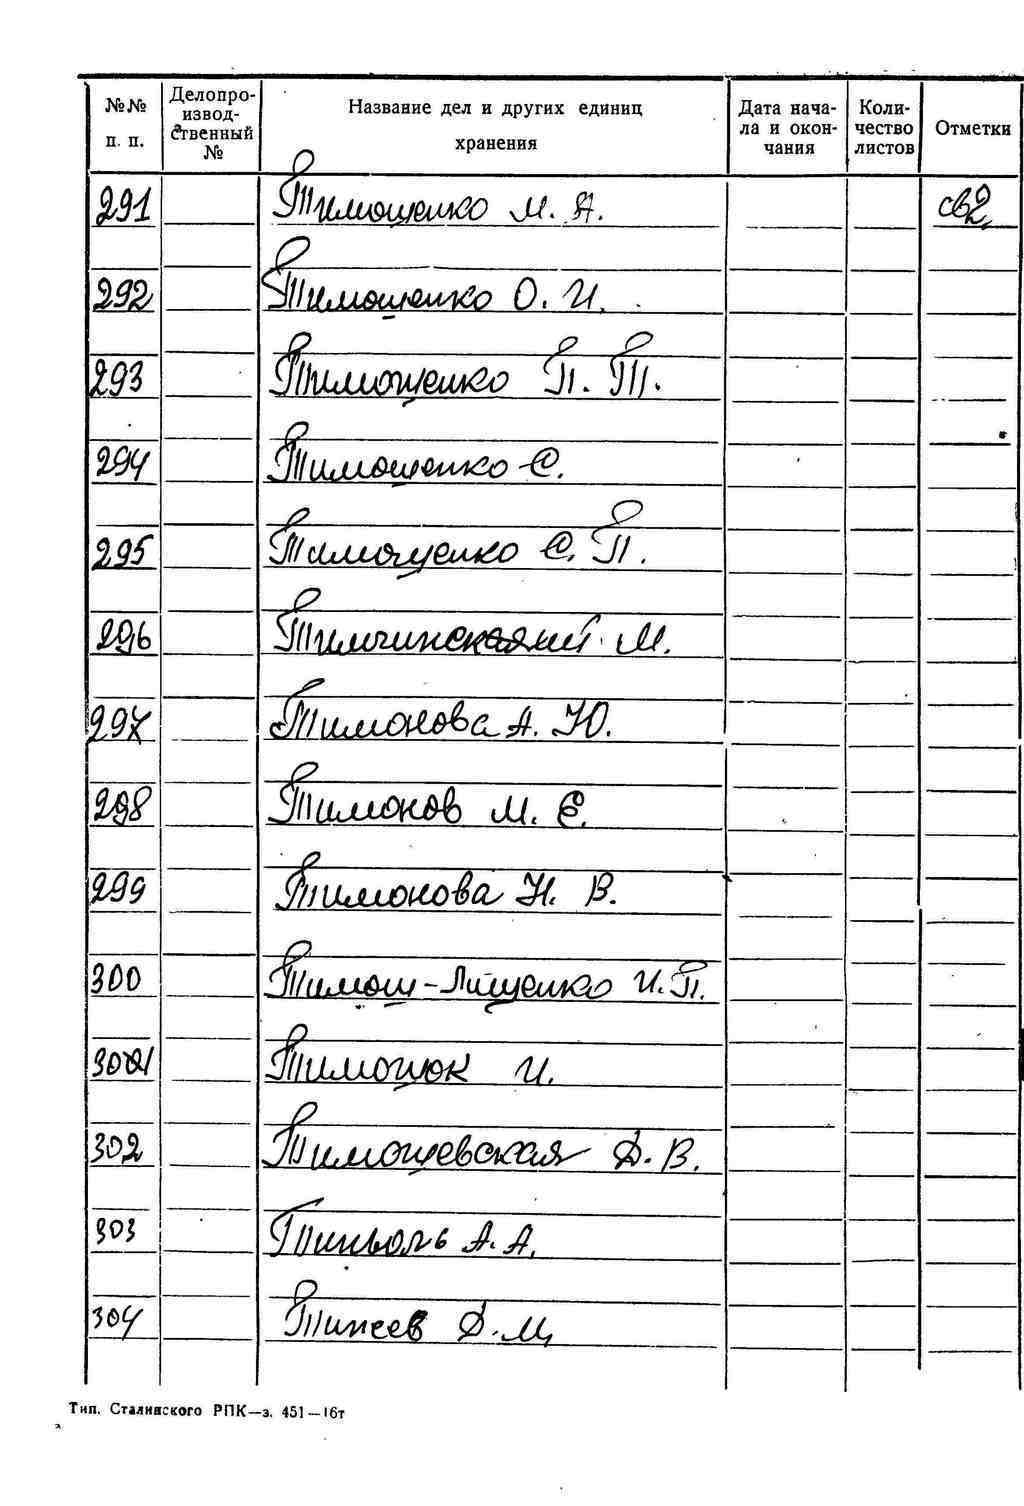 №№ п. п. Делопроизводственный № Название дел и других единиц хранения Дата начала и окончания Количество листов Отметки
291 Тимошенко М. А. св2
292 Тимошенко О. И.
293 Тимошенко П. Т.
294 Тимошенко С.
295 Тимошенко С. П.
296 М.
297 Тимонова А. Ю.
298 Тимонов М. Е.
299 Тимонова Н. В.
300 Тимош-Лищенко И. П.
301 Тимошюк И.
302 Тимошевская Д. В.
303 А. А.
304 Д. М.
Тип. Сталинского РПК—з. 451—16т